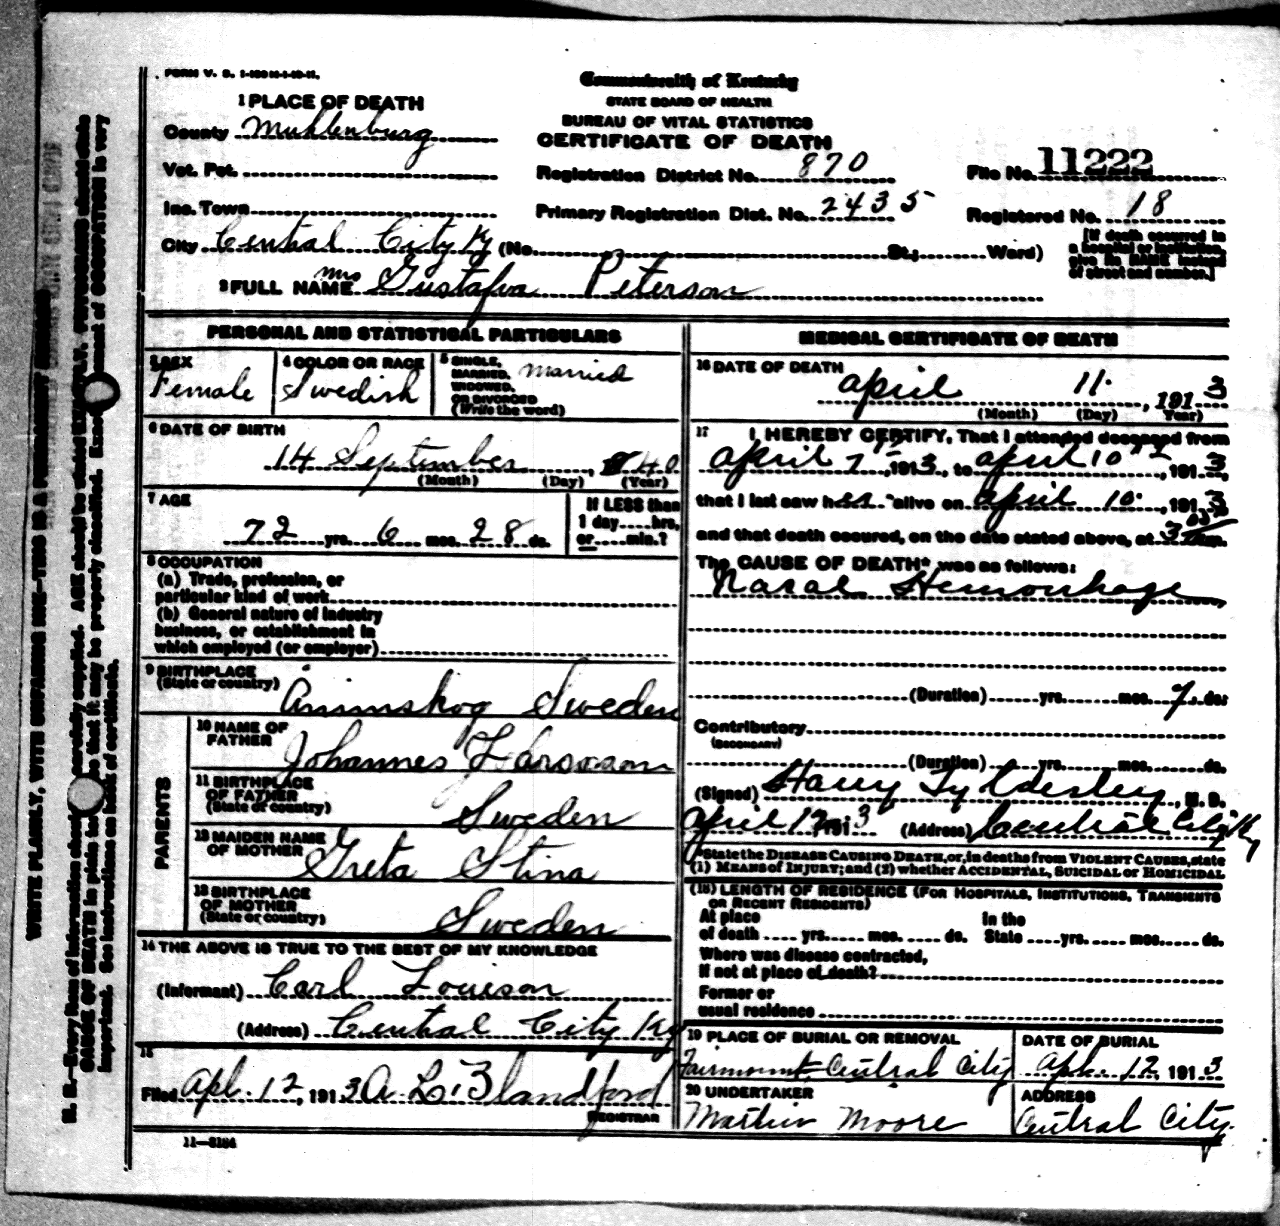 FORM V. S. 1-
Commonwealth of Kentucky
STATE BOARD OF HEALTH
BUREAU OF VITAL STATISTICS
CERTIFICATE OF DEATH
1 PLACE OF DEATH
County Muhlenburg
Vot. Pct.
Inc. Town
City Central City Ky (No. St.; Ward)
Registration District No. 870
Primary Registration Dist. No. 2435
File No. 11222
Registered No. 18
[If death occurred in
a hospital or institution,
give its NAME instead
of street and number.]
2 FULL NAME Mrs Gustafva Peterson
PERSONAL AND STATISTICAL PARTICULARS
3 SEX
Female
4 COLOR OR RACE
Swedish
5 SINGLE,
MARRIED,
WIDOWED,
OR DIVORCED
(Write the word)
Married
6 DATE OF BIRTH
14 September , 1840
(Month) (Day) (Year)
7 AGE
72 yrs. 6 mos. 28 ds.
If LESS than
1 day....hrs.
or....min.?
8 OCCUPATION
(a) Trade, profession, or
particular kind of work
(b) General nature of industry
business, or establishment in
which employed (or employer)
9 BIRTHPLACE
(State or country)
Animskog Sweden
PARENTS
10 NAME OF
FATHER
Johannes Larsson
11 BIRTHPLACE
OF FATHER
(State or country)
Sweden
12 MAIDEN NAME
OF MOTHER
Greta Stina
13 BIRTHPLACE
OF MOTHER
(State or country)
Sweden
14 THE ABOVE IS TRUE TO THE BEST OF MY KNOWLEDGE
(Informant) Carl Louison
(Address) Central City Ky
15
Filed Apl. 12, 1913 A L Blandford
REGISTRAR
11—3184
MEDICAL CERTIFICATE OF DEATH
16 DATE OF DEATH
April 11. , 1913
(Month) (Day) (Year)
17 I HEREBY CERTIFY, That I attended deceased from
April 7th, 1913, to April 10th, 1913
that I last saw her alive on April 10. , 1913
and that death occured, on the date stated above, at 3 m.
The CAUSE OF DEATH* was as follows:
Nasal Hemorrhage
(Duration) yrs. mos. 7 ds.
Contributory
(SECONDARY)
(Duration) yrs. mos. ds.
(Signed) Harry Tyldesley, M. D.
April 12, 1913 (Address) Central City Ky
*State the DISEASE CAUSING DEATH, or, in deaths from VIOLENT CAUSES, state
(1) MEANS of INJURY; and (2) whether ACCIDENTAL, SUICIDAL or HOMICIDAL
(18) LENGTH OF RESIDENCE (FOR HOSPITALS, INSTITUTIONS, TRANSIENTS
OR RECENT RESIDENTS)
At place In the
of death yrs. mos. ds. State yrs. mos. ds.
Where was disease contracted,
if not at place of death?
Former or
usual residence
19 PLACE OF BURIAL OR REMOVAL
Fairmount Central City
DATE OF BURIAL
Apl. 12, 1913
20 UNDERTAKER
Martin Moore
ADDRESS
Central City.
WRITE PLAINLY, WITH UNFADING INK—THIS IS A PERMANENT
N. B.—Every item of information should carefully supplied. AGE should be stated EXACTLY. PHYSICIANS should state
CAUSE OF DEATH in plain that it may be properly classified. ment of OCCUPATION is very
important. See instructions on back of certificate.